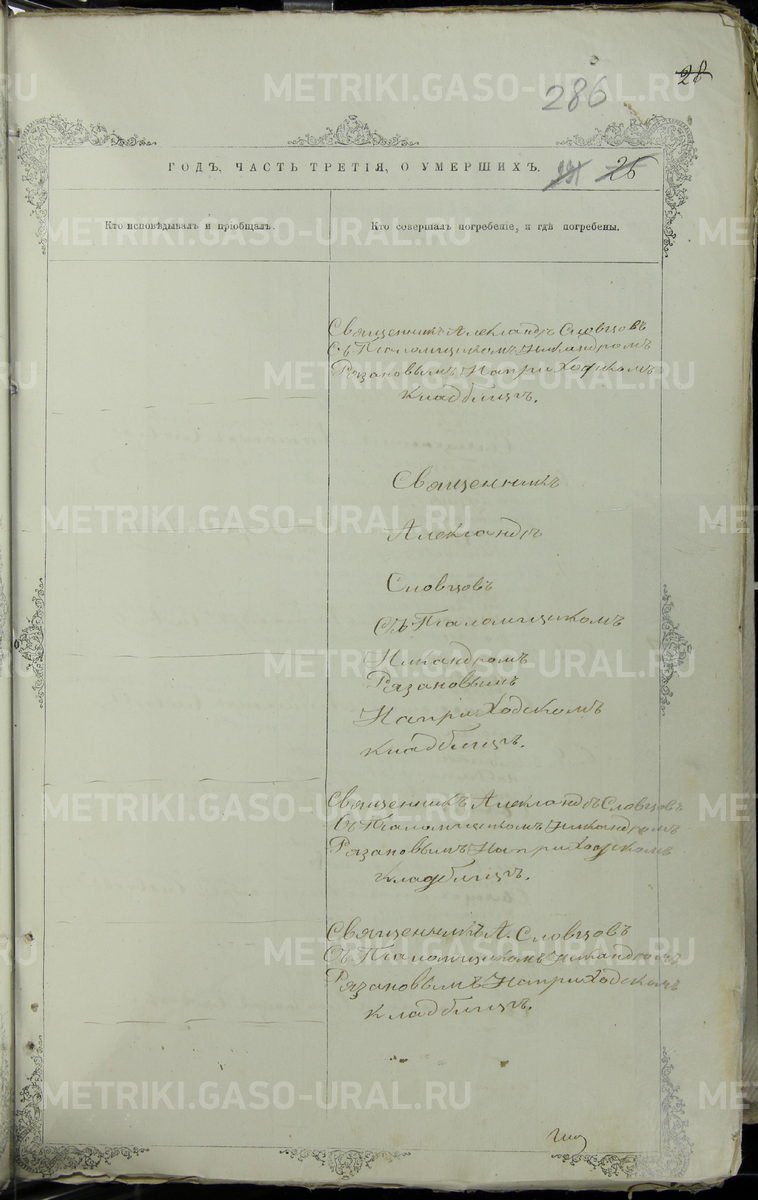 28
286
ГОДЪ, ЧАСТЬ ТРЕТІЯ, О УМЕРШИХЪ.
26
Кто исповѣдывалъ и пріобщалъ.
Кто совершалъ погребеніе, и гдѣ погребены.
Священникъ Александръ Словцовъ
Съ Псаломщикомъ Никандромъ
Рязановымъ На приходскомъ
кладбищѣ.
Священникъ
Александръ
Словцовъ
Съ Псаломщикомъ
Никандромъ
Рязановымъ
На приходскомъ
кладбищѣ.
Священникъ Александръ Словцовъ
Съ Псаломщикомъ Никандромъ
Рязановымъ На приходскомъ
кладбищѣ.
Священникъ А. Словцовъ
Съ Псаломщикомъ Никандромъ
Рязановымъ На приходскомъ
кладбищѣ.
METRIKI.GASO-URAL.RU